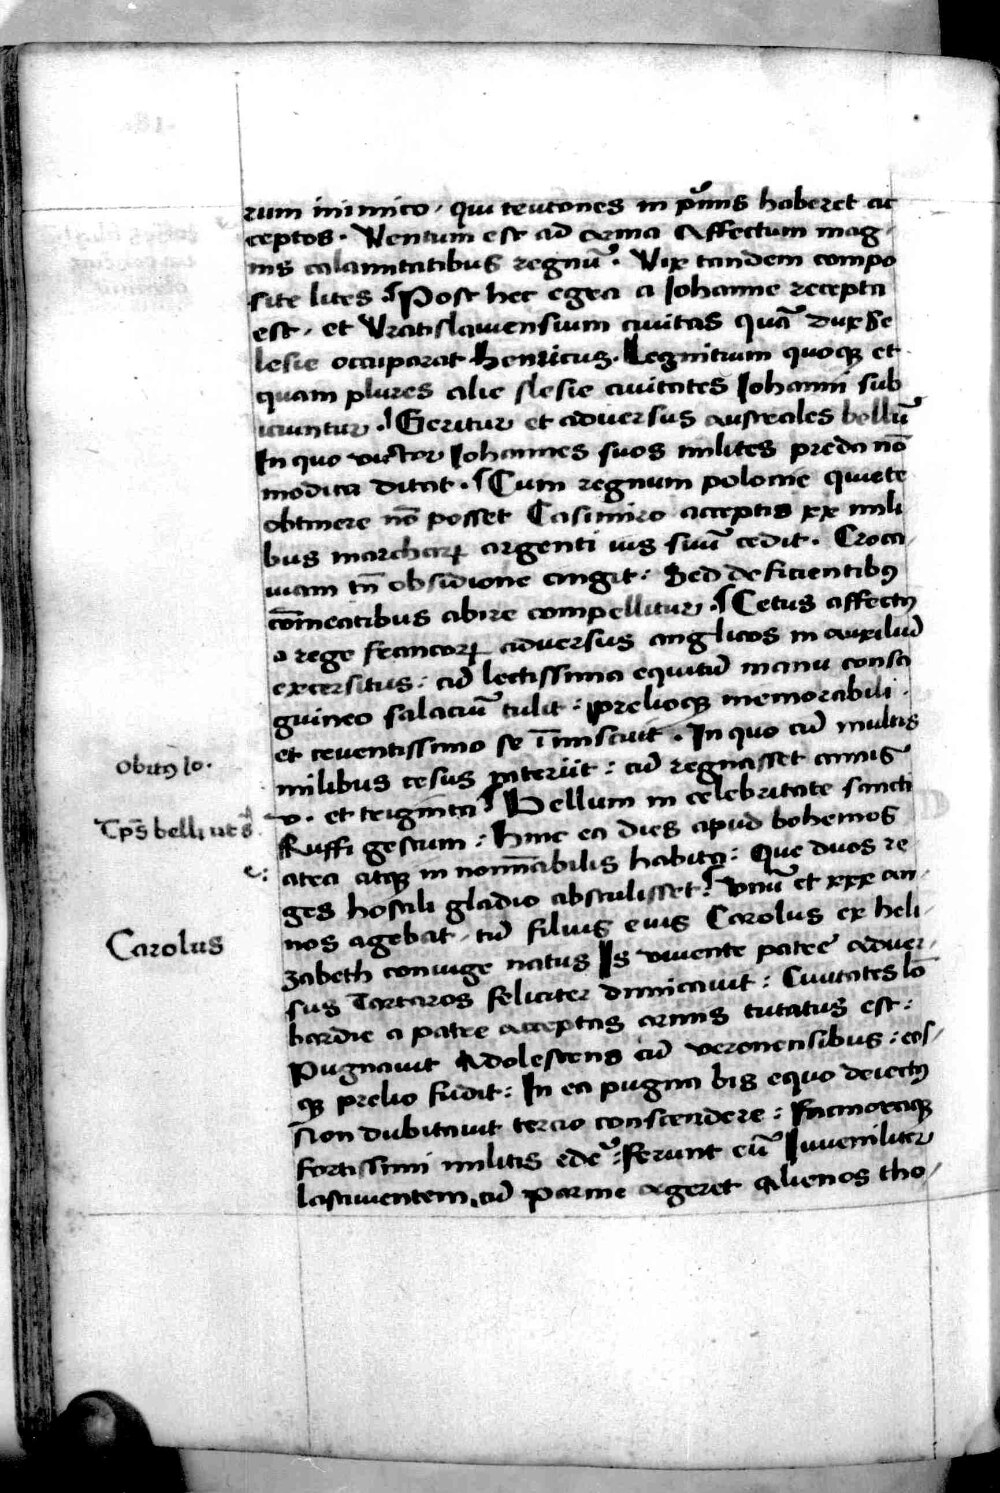 rum inimico / qui teutones in p̄mis haberet ac
ceptos . Ventum est ad arma Affectum mag-
nis calamitatibus regnū . Vix tandem compo
site lites . Post hec egea a Iohanne recepta
est / et Vratislauiensium ciuitas quā dux Sle
lesie occuparat Henricus . Legnitium quoqꝫ et
quam plures alie slesie ciuitates Iohanni sub
iciuntur . Geritur et aduersus australes bellū
In quo victor Iohannes suos milites preda nō
modica ditat . Cum regnum polonie quiete
obtinere nō posset Casimiro acceptis xx mili
bus marcharꝝ argenti ius suū cedit . Croca/
uiam tn̄ obsidione cingit : Sed deficientibꝯ
cōmeatibus abire compellitur . Cetus affectꝯ
a rege francorꝝ aduersus anglicos in auxiliū
excersitus : cū lectissima equitū manu consa
guineo salaciū tulit : prelioqꝫ memorabili .
et cruentissimo se īmiscuit . In quo cū multis
milibus cesus interiit : cū regnasset annis
v . et triginta Bellum in celebritate sancti
Ruffi gestum : Hinc ea dies apud bohemos
atra atqꝫ in nominabilis habita : Que duos re
ges hostili gladio abstulisset . Vnū et xxx an-
nos agebat / tū filius eius Carolus ex heli-
zabeth coniuge natus Is viuente patre aduer-
sus Tartaros feliciter dimicauit : Ciuitates lō
bardie a patre acceptas armis tutatus est :
Pugnauit Adolescens cū veronensibus : eos/
qꝫ prelio fudit : In ea pugna bis equo deiectꝯ
Non dubitauit tercio conscendere : Facinoraqꝫ
fortissimi militis ede : ferunt eū Iuueniliter
lasciuientem cū parme ageret Alienos tho/
obitꝯ Io .
Tp̄s belli
Carolus